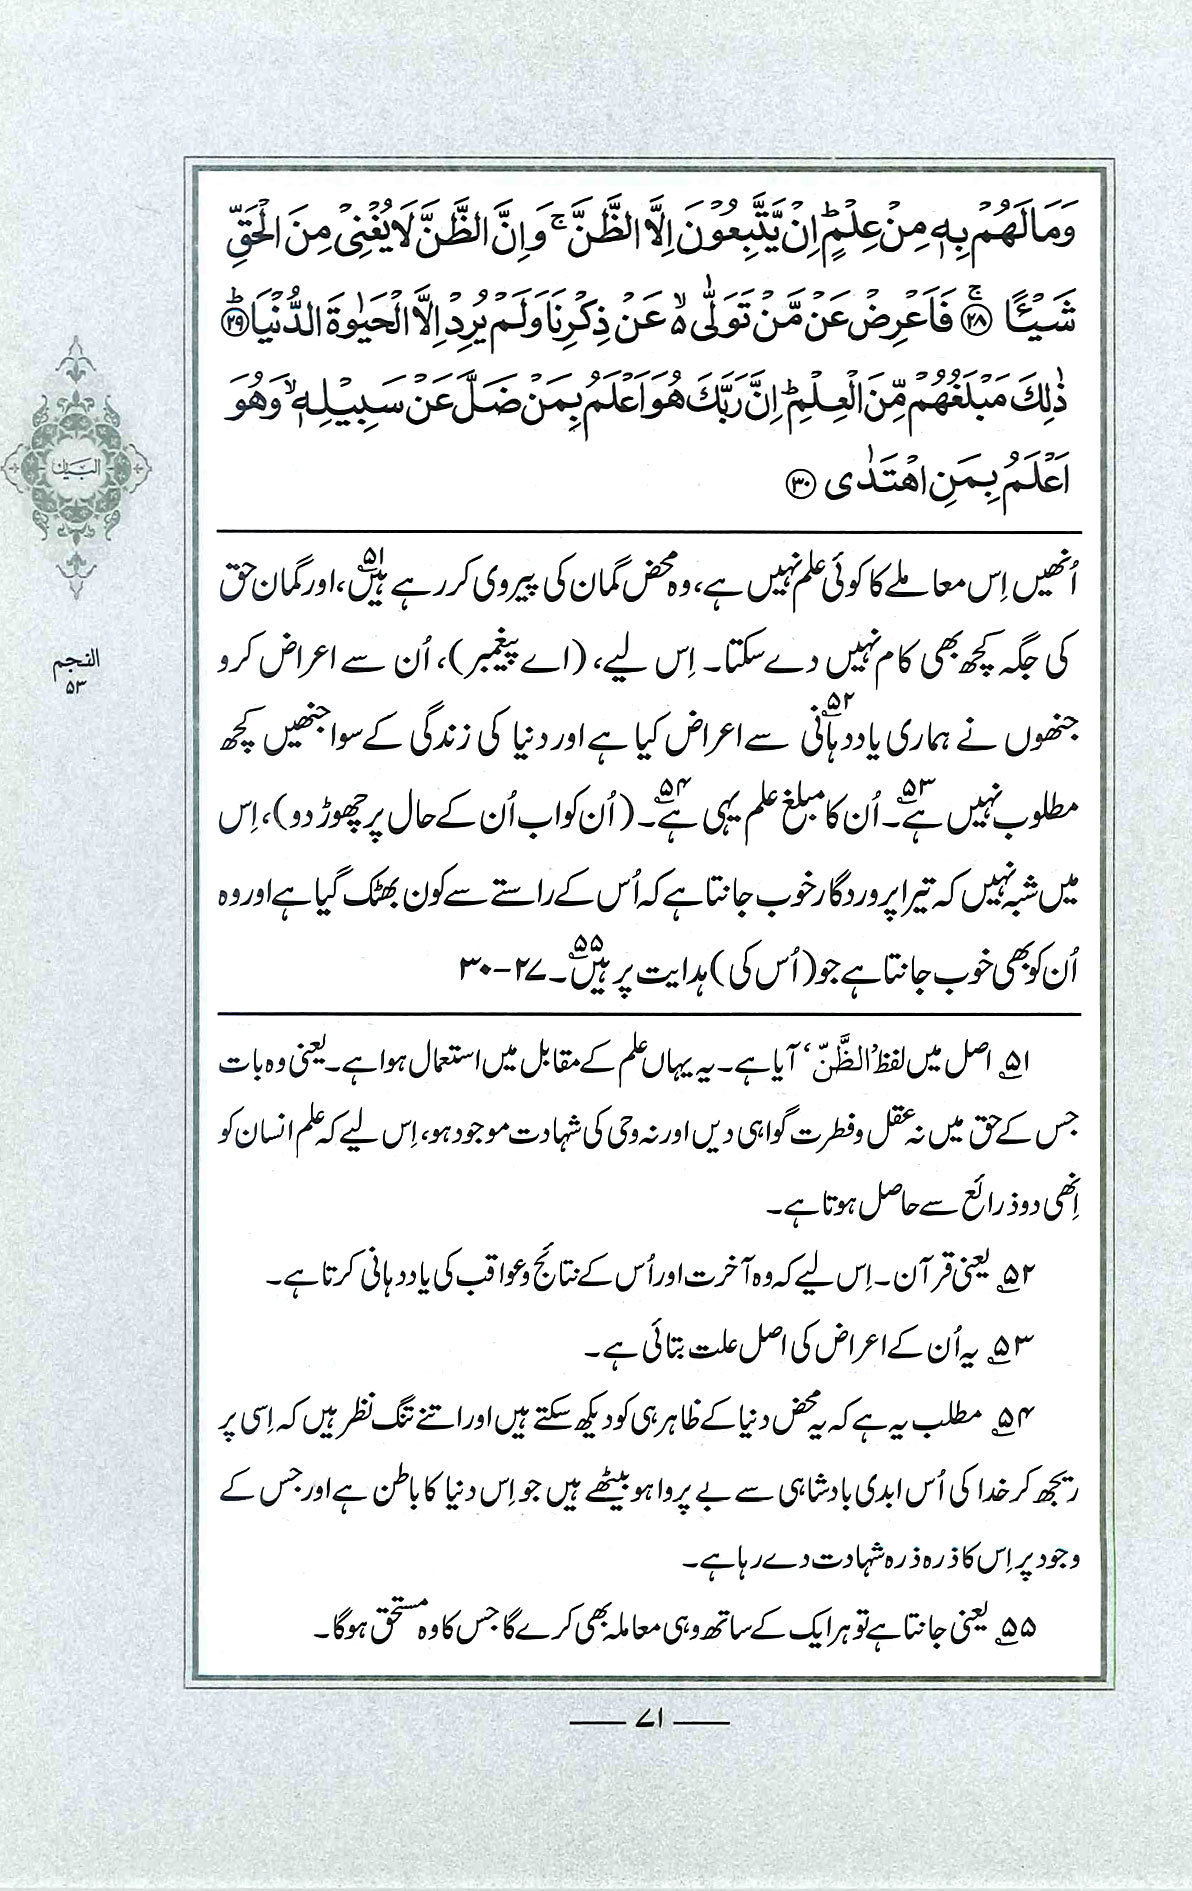 وَمَا لَهُمْ بِهٖ مِنْ عِلْمٍ ؕ اِنْ يَّتَّبِعُوْنَ اِلَّا الظَّنَّ ۚ وَاِنَّ الظَّنَّ لَا يُغْنِيْ مِنَ الْحَقِّ
شَيْـًٔا ۚ ﴿۲۸﴾ فَاَعْرِضْ عَنْ مَّنْ تَوَلّٰى ۙ۬ عَنْ ذِكْرِنَا وَلَمْ يُرِدْ اِلَّا الْحَيٰوةَ الدُّنْيَا ؕ ﴿۲۹﴾
ذٰلِكَ مَبْلَغُهُمْ مِّنَ الْعِلْمِ ؕ اِنَّ رَبَّكَ هُوَ اَعْلَمُ بِمَنْ ضَلَّ عَنْ سَبِيْلِهٖ ۙ وَهُوَ
اَعْلَمُ بِمَنِ اهْتَدٰى ﴿۳۰﴾
اُنھیں اِس معاملے کا کوئی علم نہیں ہے، وہ محض گمان کی پیروی کر رہے ہیں۵۱، اور گمان حق
کی جگہ کچھ بھی کام نہیں دے سکتا۔ اِس لیے، (اے پیغمبر)، اُن سے اعراض کرو
جنھوں نے ہماری یاددہانی۵۲ سے اعراض کیا ہے اور دنیا کی زندگی کے سوا جنھیں کچھ
مطلوب نہیں ہے۵۳۔ اُن کا مبلغ علم یہی ہے۵۴۔ (اُن کو اب اُن کے حال پر چھوڑ دو)، اِس
میں شبہ نہیں کہ تیرا پروردگار خوب جانتا ہے کہ اُس کے راستے سے کون بھٹک گیا ہے اور وہ
اُن کو بھی خوب جانتا ہے جو (اُس کی) ہدایت پر ہیں۵۵۔ ۲۷-۳۰
۵۱؎ اصل میں لفظ ’الظَّنّ‘ آیا ہے۔ یہ یہاں علم کے مقابل میں استعمال ہوا ہے۔ یعنی وہ بات
جس کے حق میں نہ عقل و فطرت گواہی دیں اور نہ وحی کی شہادت موجود ہو، اِس لیے کہ علم انسان کو
اِنھی دو ذرائع سے حاصل ہوتا ہے۔
۵۲؎ یعنی قرآن۔ اِس لیے کہ وہ آخرت اور اُس کے نتائج و عواقب کی یاددہانی کرتا ہے۔
۵۳؎ یہ اُن کے اعراض کی اصل علت بتائی ہے۔
۵۴؎ مطلب یہ ہے کہ یہ محض دنیا کے ظاہر ہی کو دیکھ سکتے ہیں اور اتنے تنگ نظر ہیں کہ اِسی پر
ریجھ کر خدا کی اُس ابدی بادشاہی سے بے پروا ہو بیٹھے ہیں جو اِس دنیا کا باطن ہے اور جس کے
وجود پر اِس کا ذرہ ذرہ شہادت دے رہا ہے۔
۵۵؎ یعنی جانتا ہے تو ہر ایک کے ساتھ وہی معاملہ بھی کرے گا جس کا وہ مستحق ہوگا۔
البیان
النجم
۵۳
۷۱